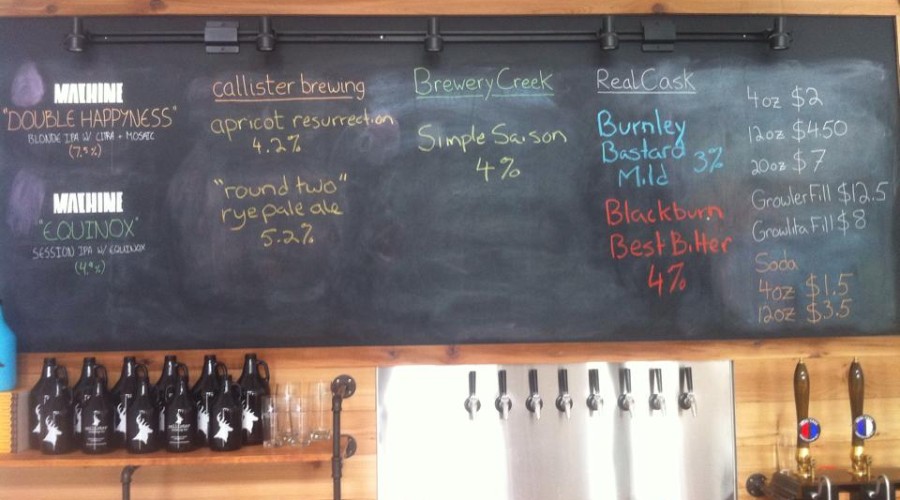 MACHINE
"DOUBLE HAPPYNESS"
BLONDE IPA W/ CITRA + MOSAIC
(7.5%)
MACHINE
"EQUINOX"
SESSION IPA W/ EQUINOX
(4.9%)
callister brewing
apricot resurrection
4.2%
"round two"
rye pale ale
5.2%
Brewery Creek
Simple Saison
4%
Real Cask
Burnley
Bastard 3%
Mild
Blackburn
Best Bitter
4%
4oz $2
12oz $4.50
20oz $7
Growler Fill $12.5
Growlita Fill $8
Soda
4oz $1.5
12oz $3.5